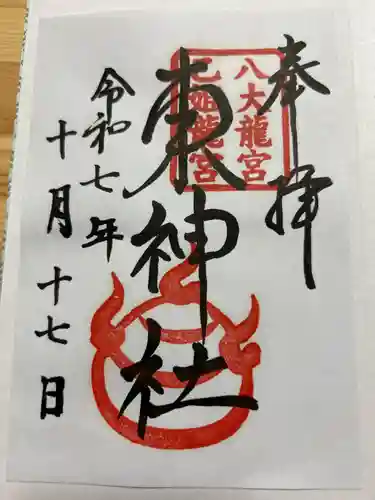 奉拝
八大龍宮
乙姫龍宮
東神社
令和七年
十月十七日